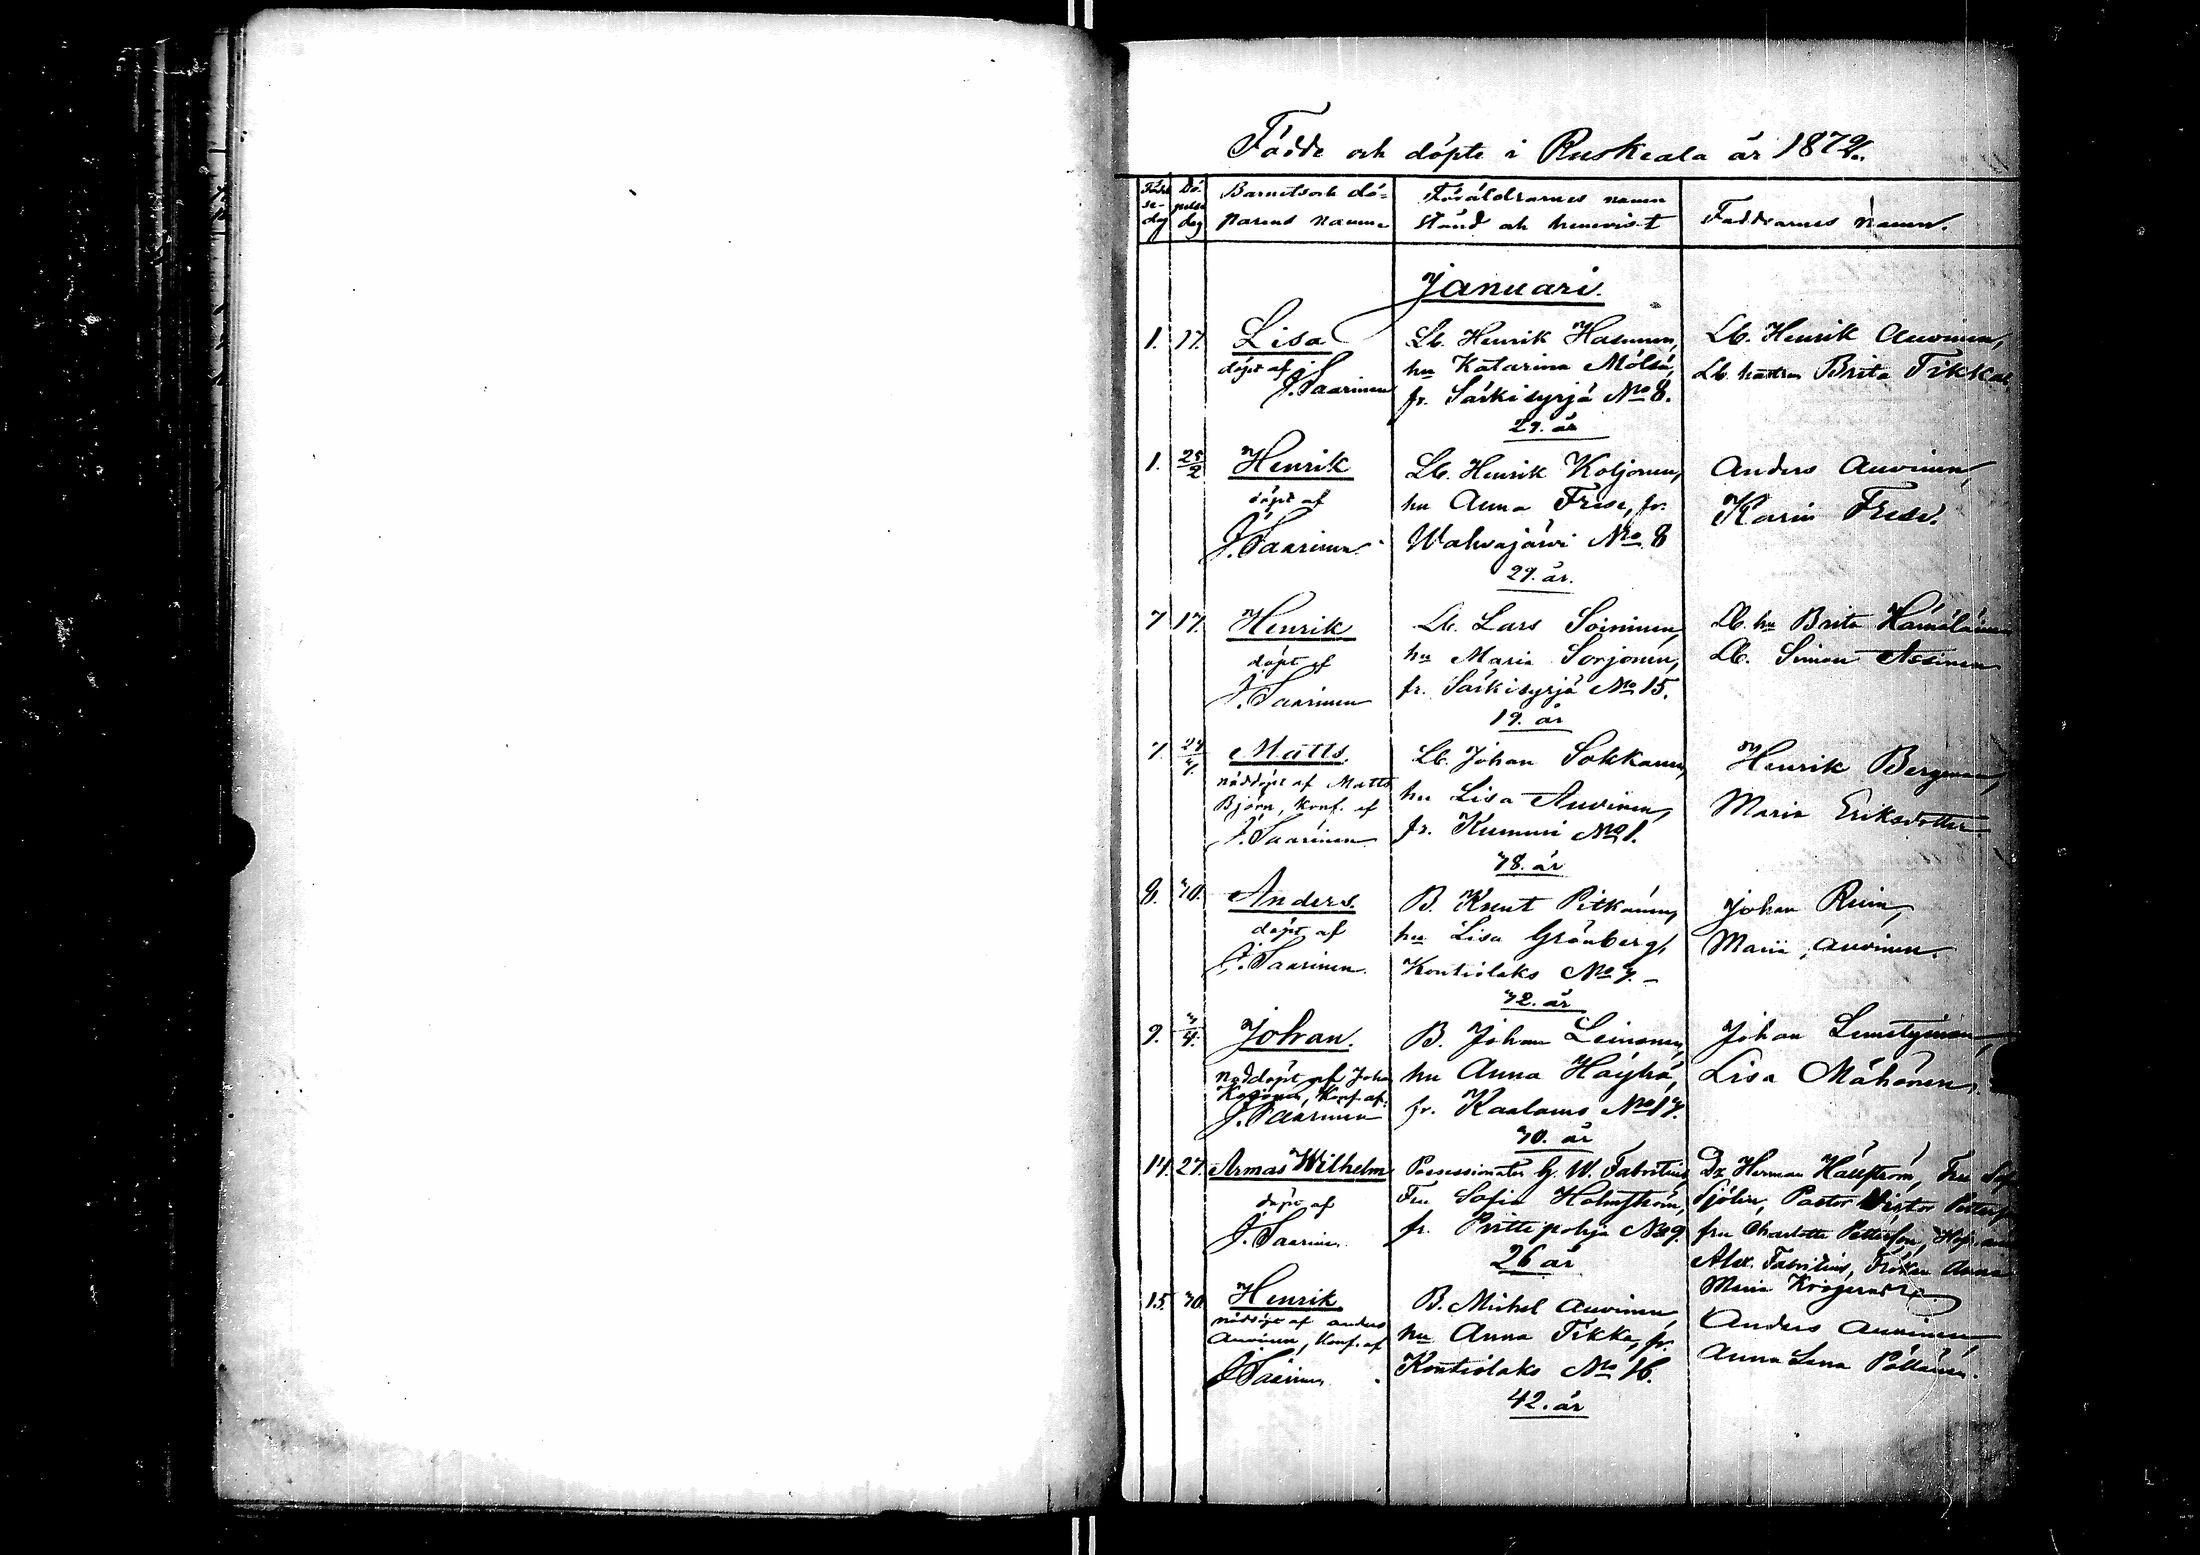 Födde och döpte i Ruskeala år 1872.
Födel se- dag
Dö- pelse dag
Barnets och dö- parens namn
Föräldrarnes namn stånd och hemvist
Faddrarnes namn.
Januari.
1. 17. Lisa
döpt af
J. Saarinen
Lb. Henrik Hasunen,
hu Katarina Mölsä,
fr. Särkisyrjä No 8.
29. år
Lb. Henrik Auvinen,
Lb. hustru Brita Tikka
1. 25/2 Henrik
döpt af
J. Saarinen
Lb. Henrik Koljonen,
hu Anna Frese, fr.
Wahvajärvi No 8
29. år.
Anders Auvinen,
Karin Frese.
7 17. Henrik
döpt af
J. Saarinen
Lb. Lars Soininen,
hu Maria Sorjonen,
fr. Särkisyrjä No 15.
19. år
Lb. hu Brita Hämäläinen
Lb. Simon Assinen
7. Matts.
nöddöpt af Matts
Björn, Konf. af
J. Saarinen
Lb. Johan Sokkanen,
hu Lisa Auvinen,
fr. Kummi No 1.
38. år
Henrik Bergman,
Maria Eriksdotter
8. 30. Anders.
döpt af
J. Saarinen.
B. Knut Pitkänen,
hu Lisa Grönberg,
Kontiolaks No 3.
32. år
Johan Reim,
Maria Auvinen.
9. 3/4. Johan.
Nöddöpt af Johan
Konf. af
J. Saarinen
B. Johan Leinonen,
hu Anna Häyhä,
fr. Kaalamo No 13.
30. år
Johan
Lisa Mähönen.
14. 27. Armas Wilhelm
döpt af
J. Saarinen.
Possessionaten G. W. Fabritius
Fru Sofia Holmström,
fr. Prittipohja No 9.
26 år
Dr Herman Hällström, Fru
Sjölin, Pastor Victor
fru Charlotte Petterson,
Alex. Fabritius, Fröken Anna
Maria
15. 30. Henrik.
nöddöpt af Anders
Auvinen, Konf. af
J. Saarinen
B. Michel Auvinen
hu Anna Tikka, fr.
Kontiolaks No 16.
42. år
Anders Auvinen
Anna Lena Pöllänen.